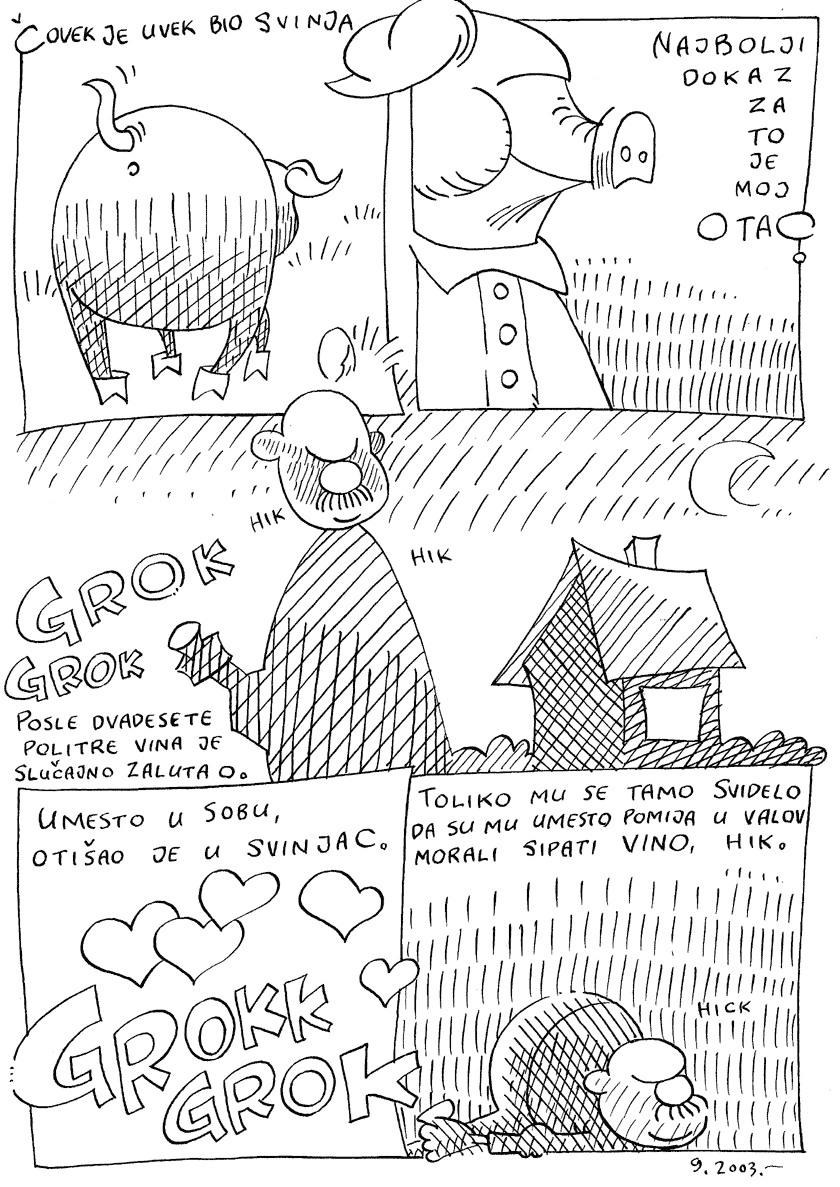 ČOVEK JE UVEK BIO SVINJA
NAJBOLJI
DOKAZ
ZA
TO
JE
MOJ
OTAC
HIK
HIK
GROK
GROK
POSLE DVADESETE
POLITRE VINA JE
SLUČAJNO ZALUTAO.
UMESTO U SOBU,
OTIŠAO JE U SVINJAC.
GROKK
GROK
TOLIKO MU SE TAMO SVIDELO
DA SU MU UMESTO POMIJA U VALOV
MORALI SIPATI VINO, HIK.
HICK
9.2003.—